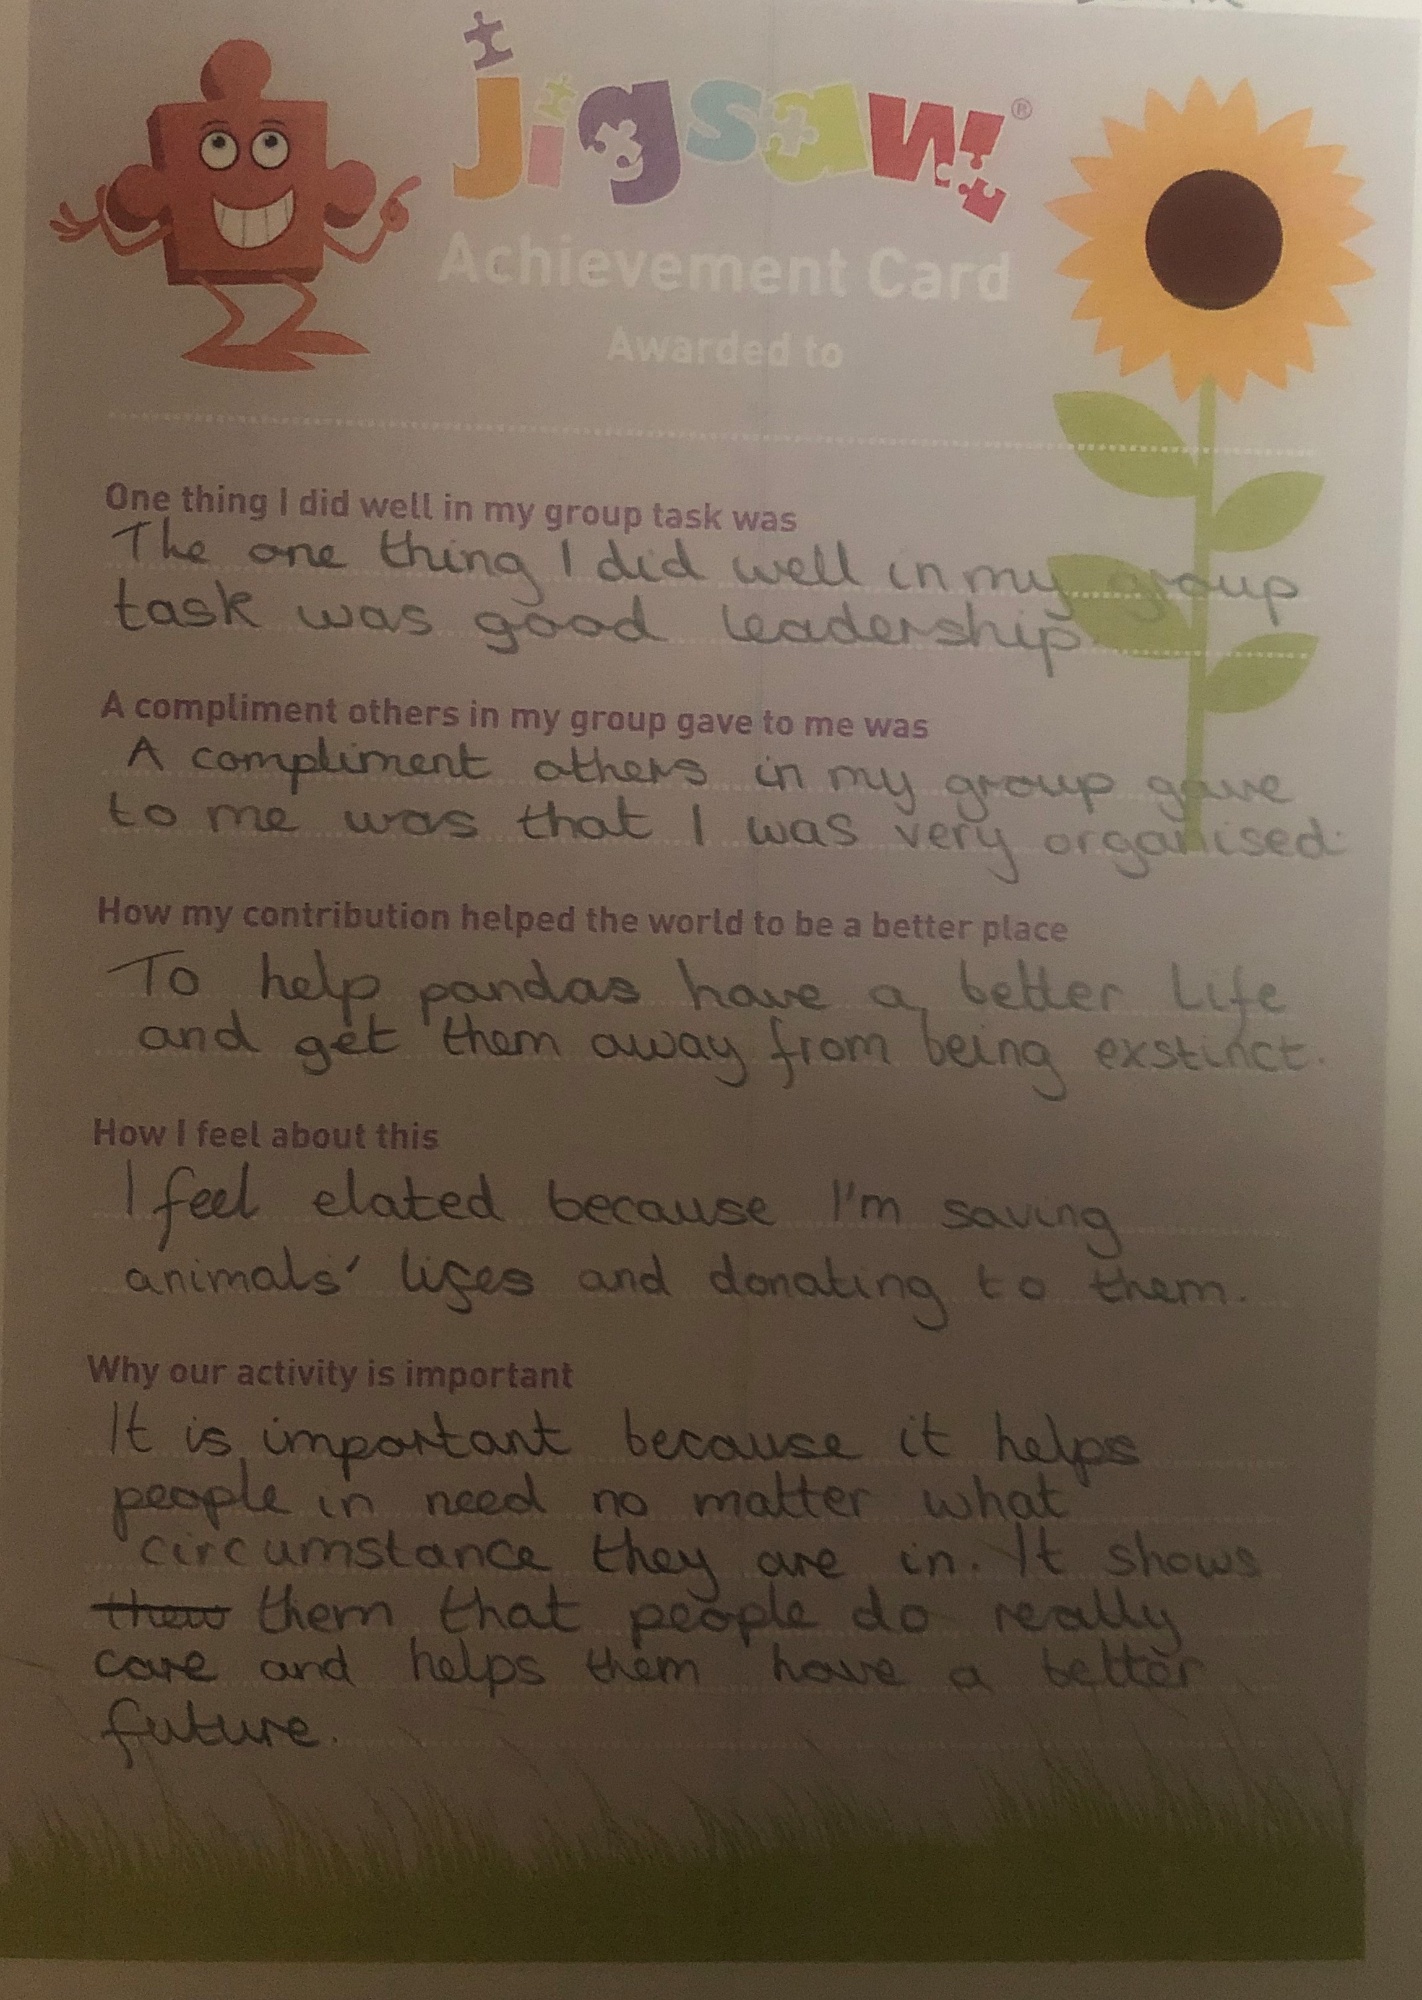 jigsaw ®
Achievement Card
Awarded to
One thing I did well in my group task was
The one thing I did well in my group
task was good leadership
A compliment others in my group gave to me was
A compliment others in my group gave
to me was that I was very organised.
How my contribution helped the world to be a better place
To help pandas have a better life
and get them away from being exstinct.
How I feel about this
I feel elated because I'm saving
animals' lifes and donating to them.
Why our activity is important
It is important because it helps
people in need no matter what
circumstance they are in. It shows
them that people do really
care and helps them have a better
future.